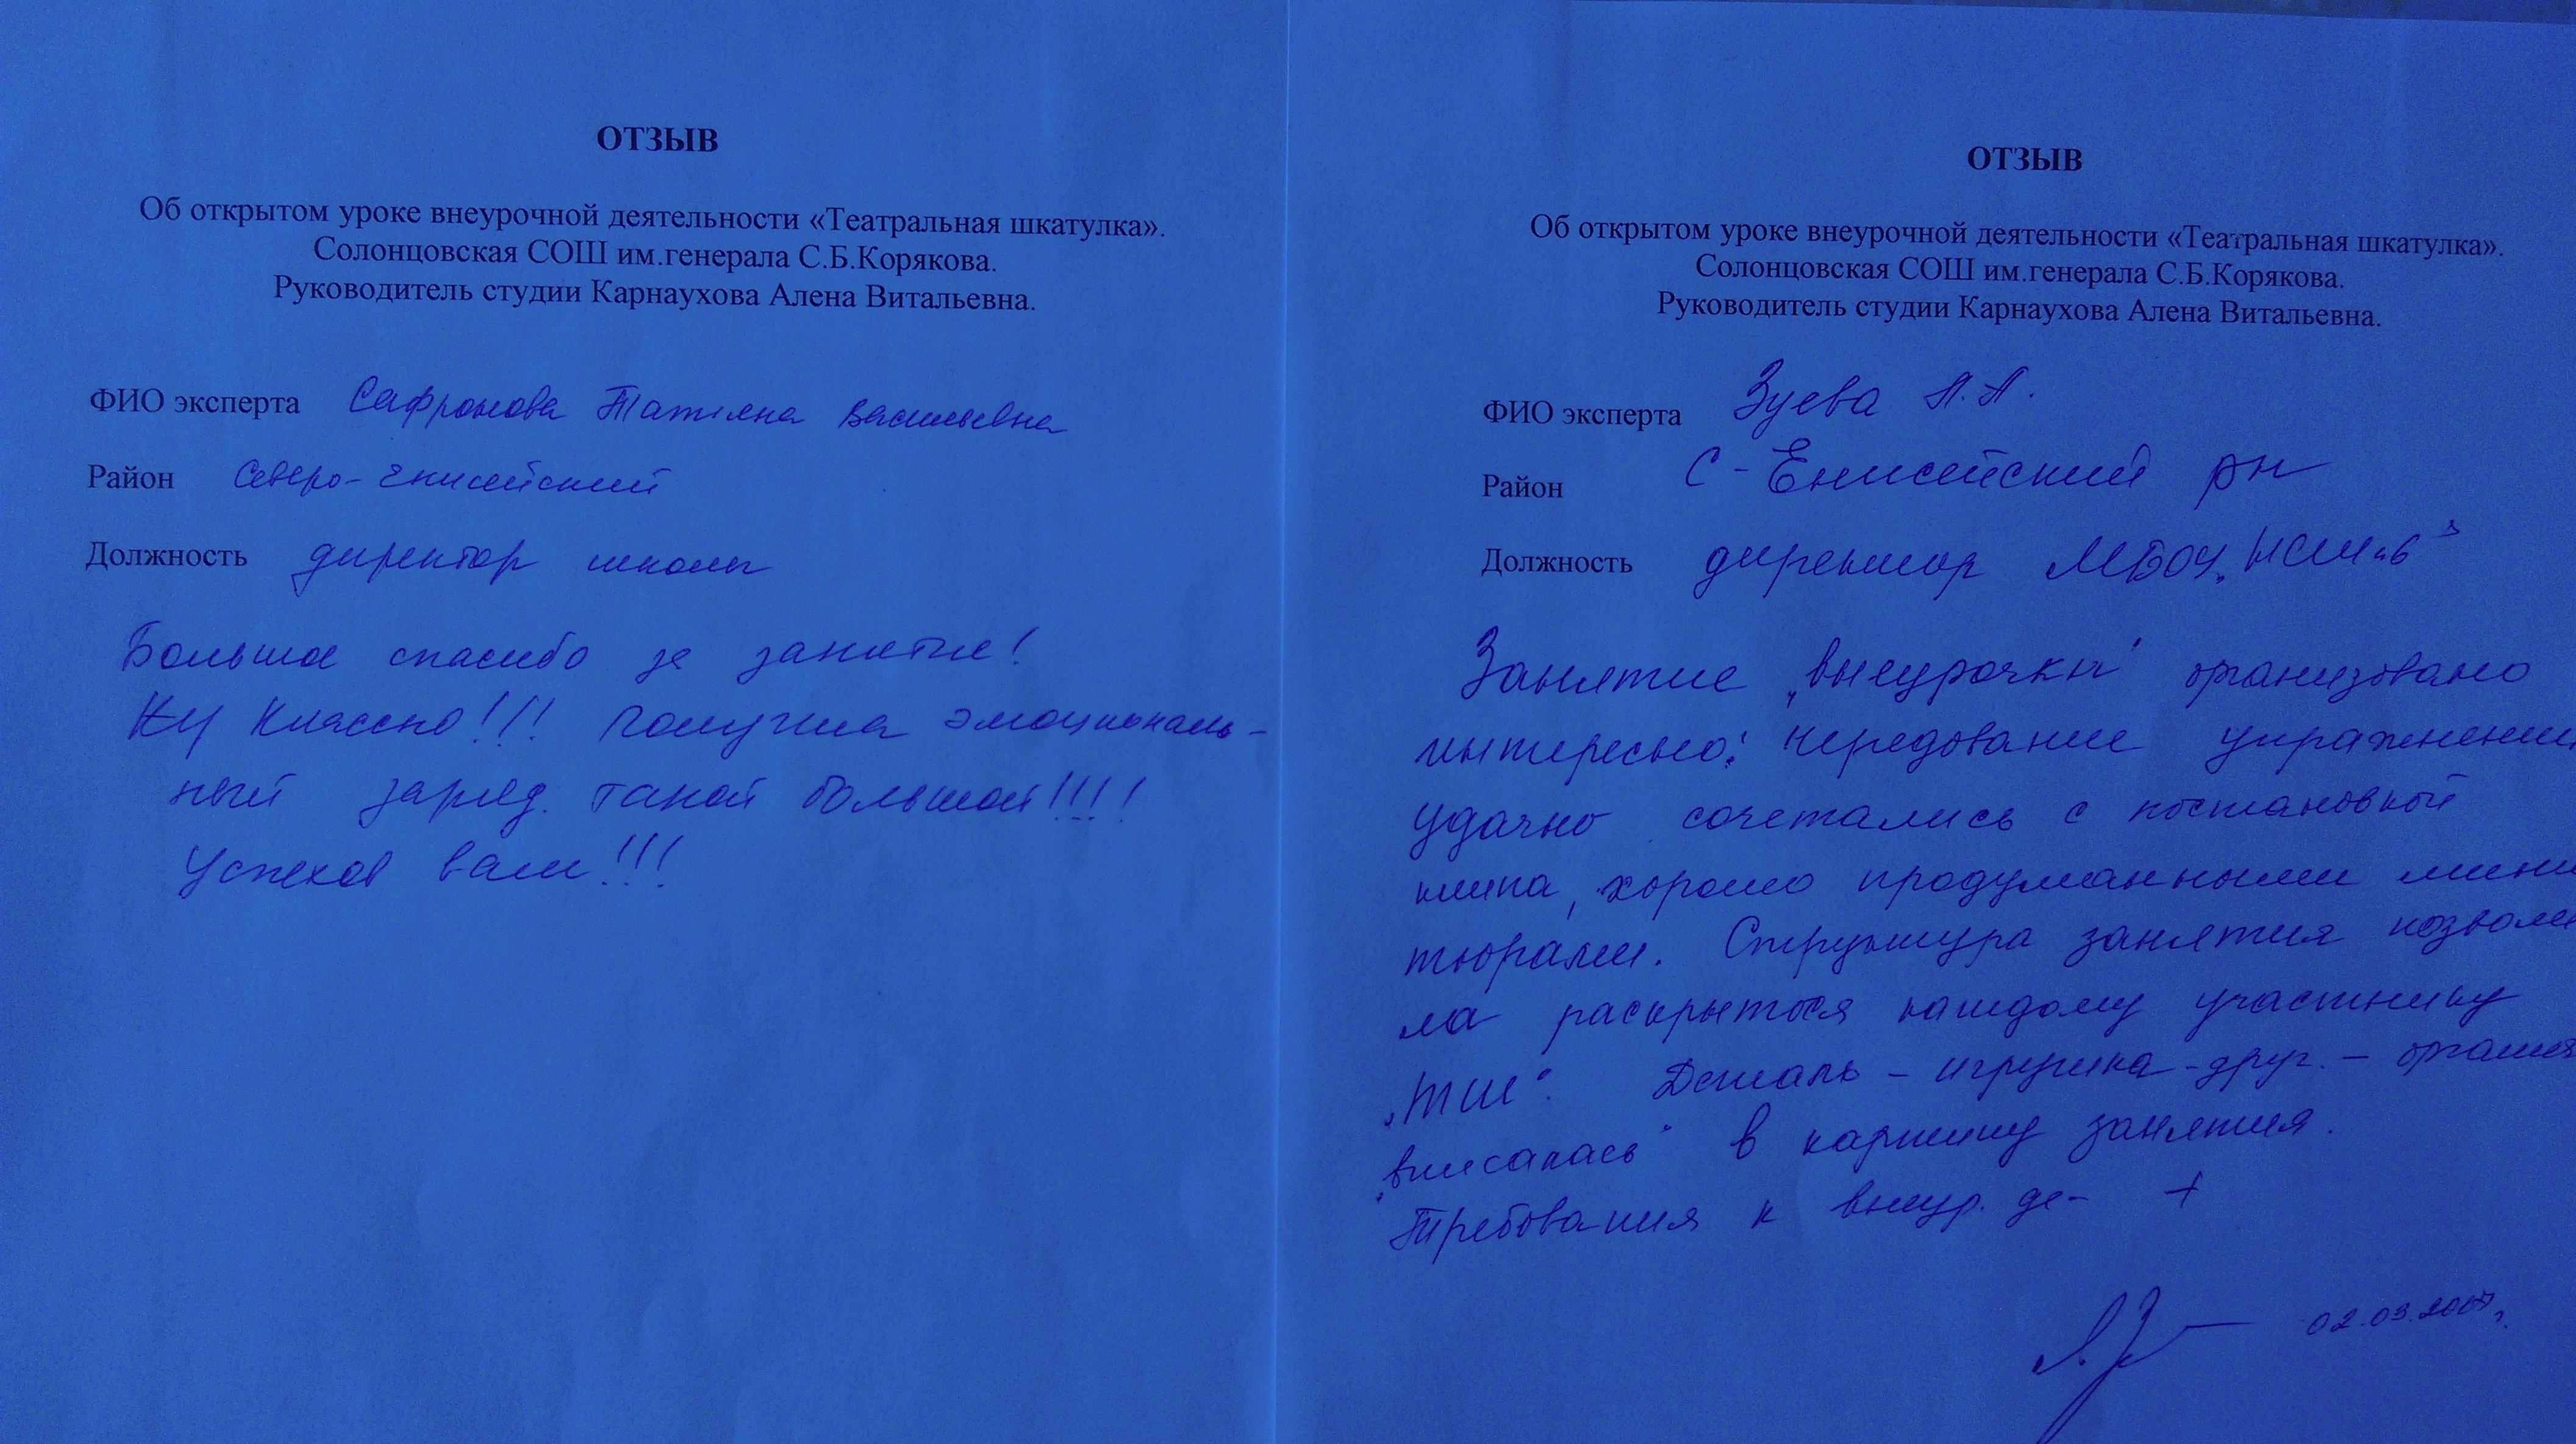 ОТЗЫВ
Об открытом уроке внеурочной деятельности «Театральная шкатулка».
Солонцовская СОШ им.генерала С.Б.Корякова.
Руководитель студии Карнаухова Алена Витальевна.
ФИО эксперта Сафронова Татьяна Васильевна
Район Северо-Енисейский
Должность директор школы
Большое спасибо за занятие!
Ну Классно!!! Получила эмоциональ-
ный заряд. такой большой!!!!
Успехов вам!!!
ОТЗЫВ
Об открытом уроке внеурочной деятельности «Театральная шкатулка».
Солонцовская СОШ им.генерала С.Б.Корякова.
Руководитель студии Карнаухова Алена Витальевна.
ФИО эксперта Зуева Л.А.
Район С-Енисейский рн
Должность директор МБОУ
Занятие „внеурочки" организовано
интересно: чередование упражнений
удачно сочетались с постановкой
клипа, хорошо продуманными мини
тюрами. Структура занятия позволи
ла раскрыться каждому участнику
Деталь - игрушка-друг. -
„вписалась" в картину занятия.
Требования к внеур. де- +
02.03.